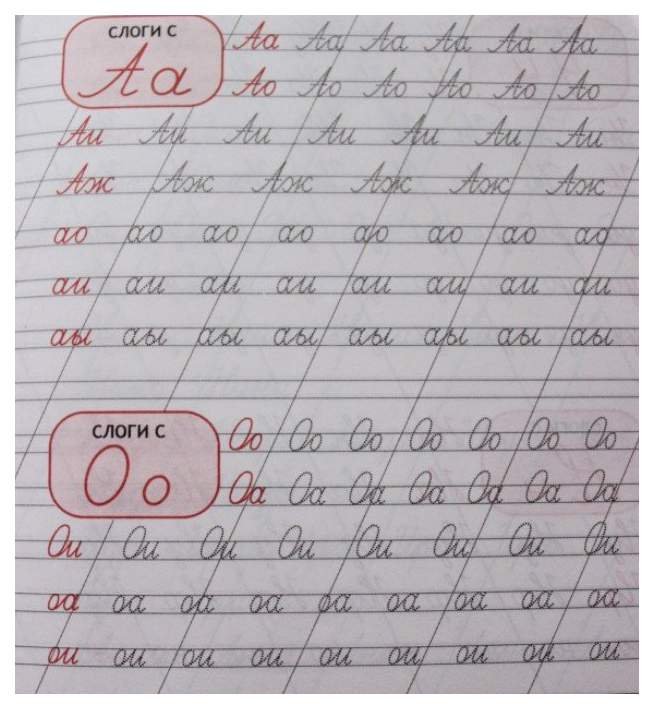 СЛОГИ С
Аа
Аа Аа Аа Аа Аа Аа
Ао Ао Ао Ао Ао Ао
Аи Аи Аи Аи Аи Аи Аи
Аж Аж Аж Аж Аж Аж
ао ао ао ао ао ао ао ао
аи аи аи аи аи аи аи аи
аы аы аы аы аы аы аы аы
СЛОГИ С
О о
Оо Оо Оо Оо Оо Оо Оо
Оа Оа Оа Оа Оа Оа Оа
Ои Ои Ои Ои Ои Ои Ои Ои
оа оа оа оа оа оа оа оа оа
ои ои ои ои ои ои ои ои ои